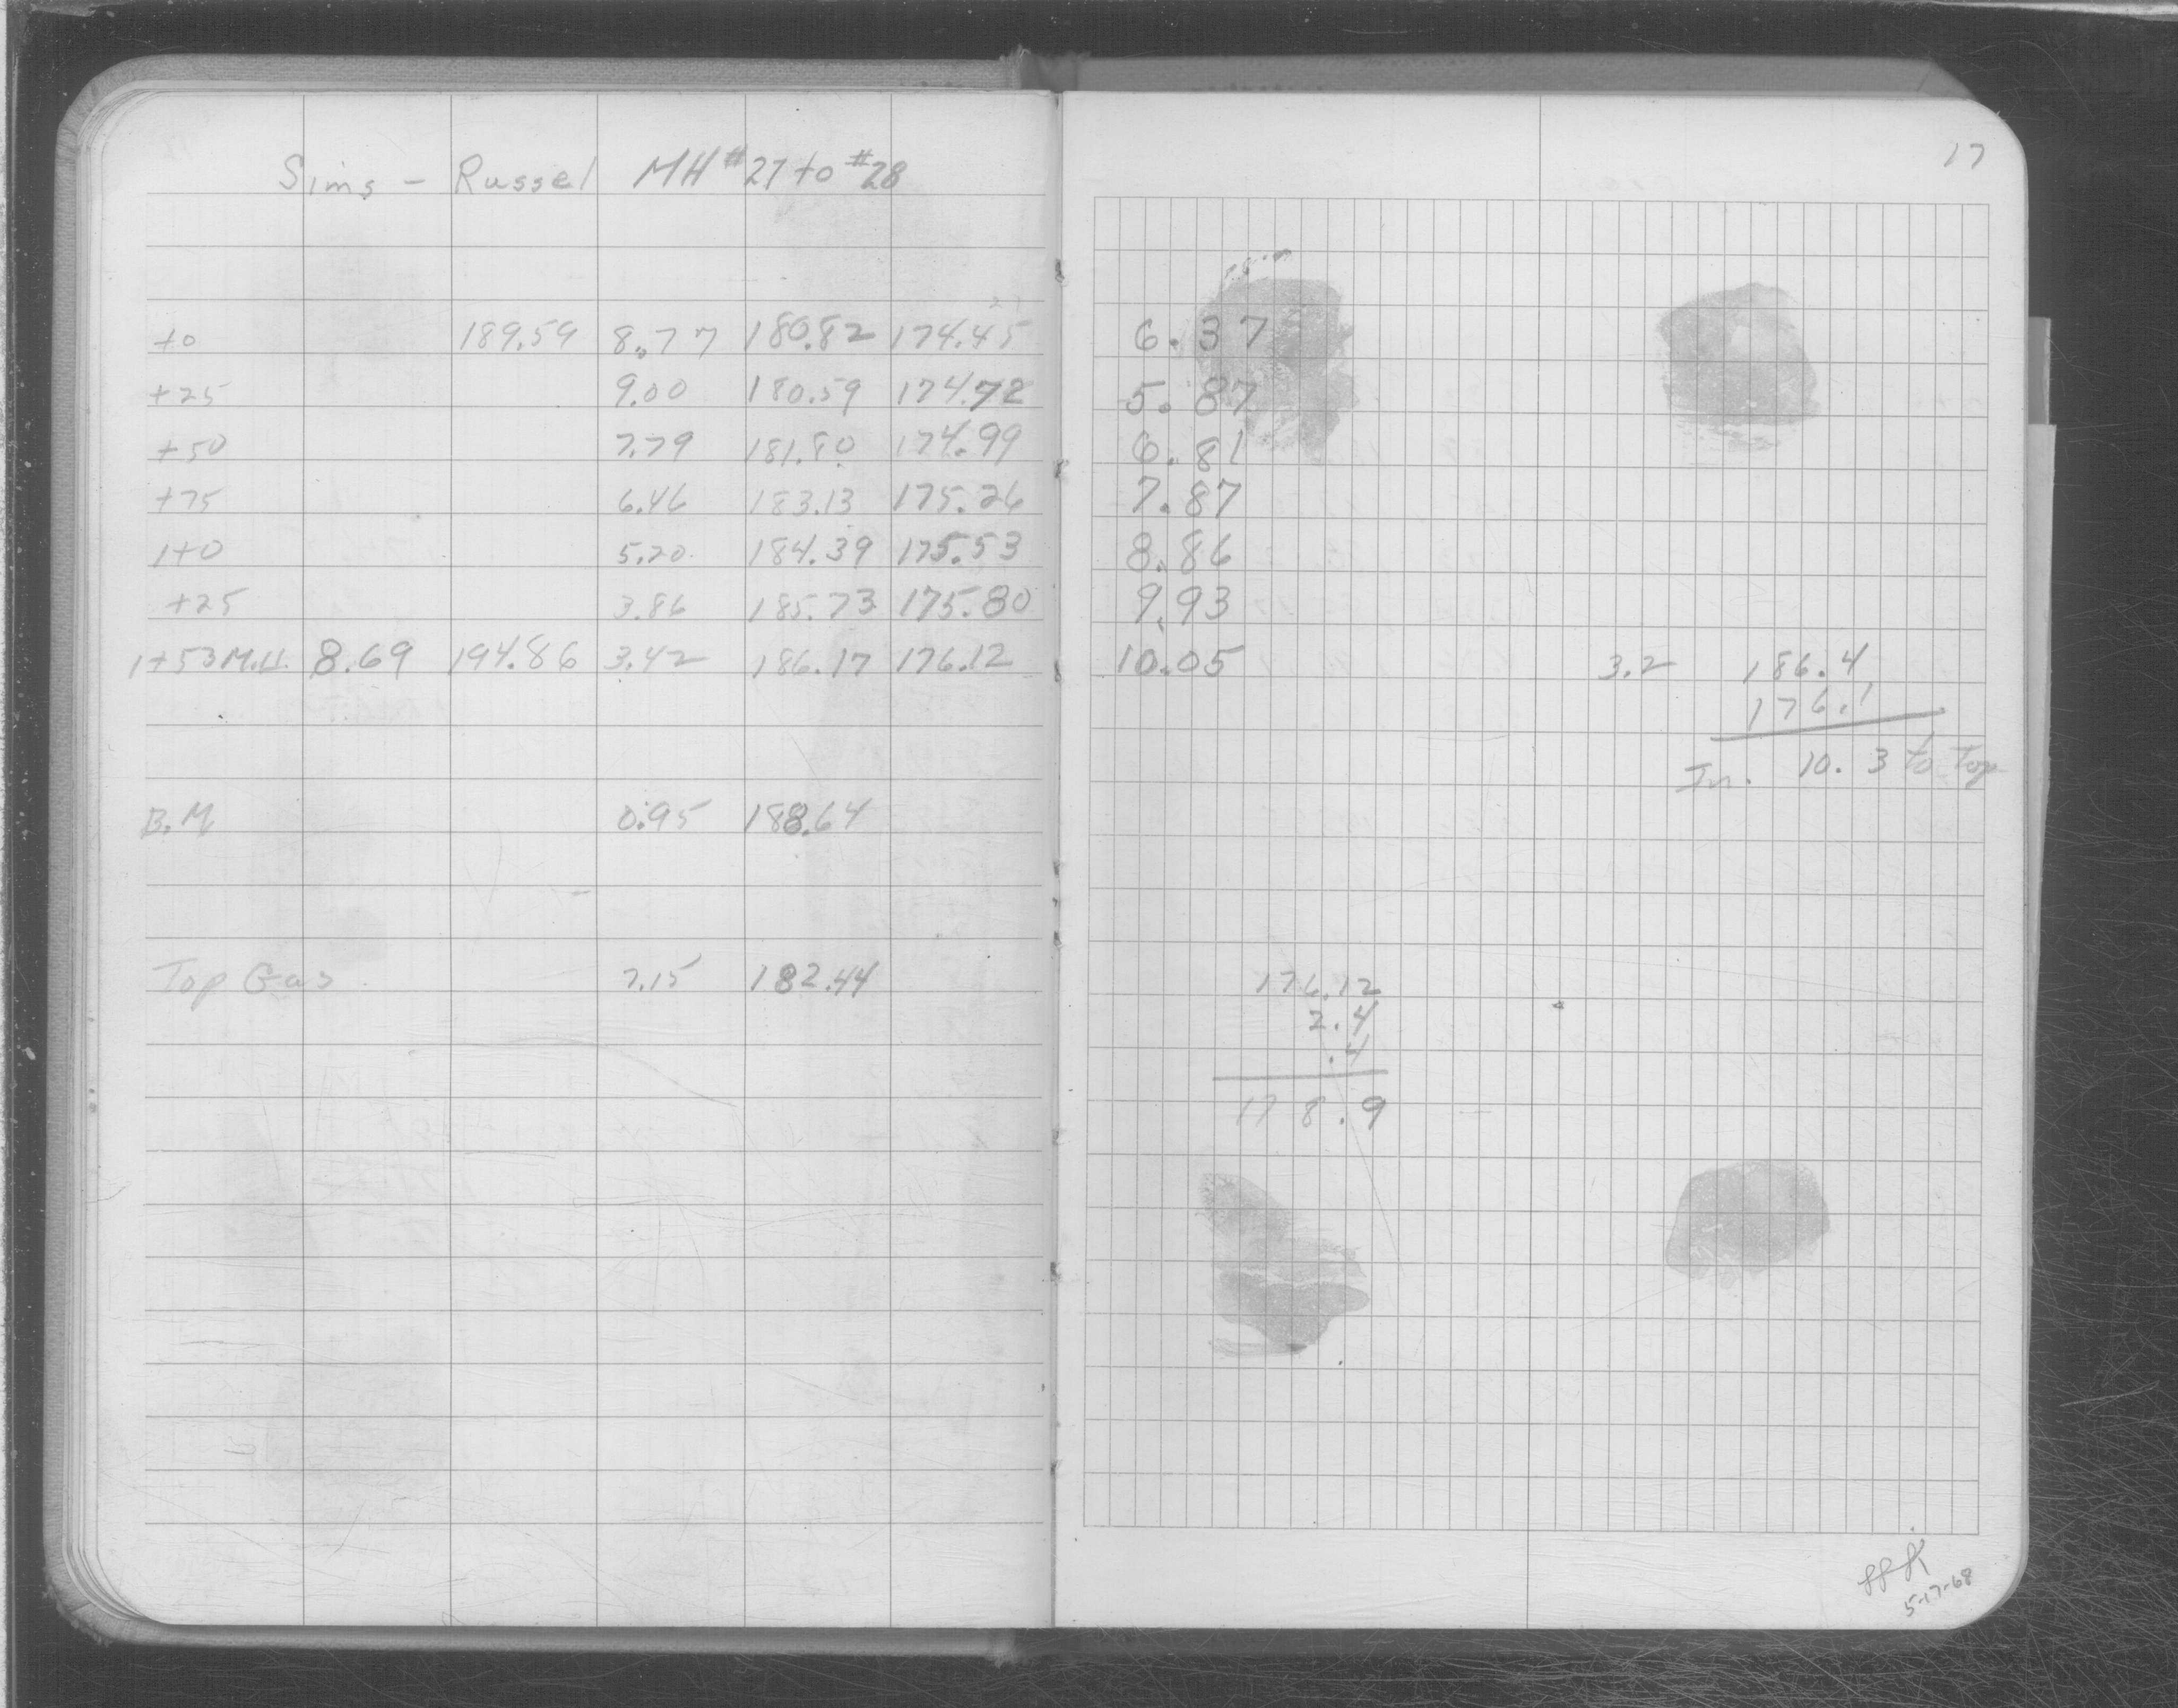 Sims - Russel MH #27 to #28
17
+0 189.59 8.77 180.82 174.45 6.37
+25 9.00 180.59 174.72 5.87
+50 7.79 181.80 174.99 6.81
+75 6.46 183.13 175.26 7.87
1+0 5.20 184.39 175.53 8.86
+25 3.86 185.73 175.80 9.93
1+53 M.H. 8.69 194.86 3.42 186.17 176.12 10.05 3.2 186.4
176.1
In. 10.3 to Top
B.M 0.95 188.64
Top Gas 7.15 182.44 176.12
2.4
.4
178.9
5-17-68